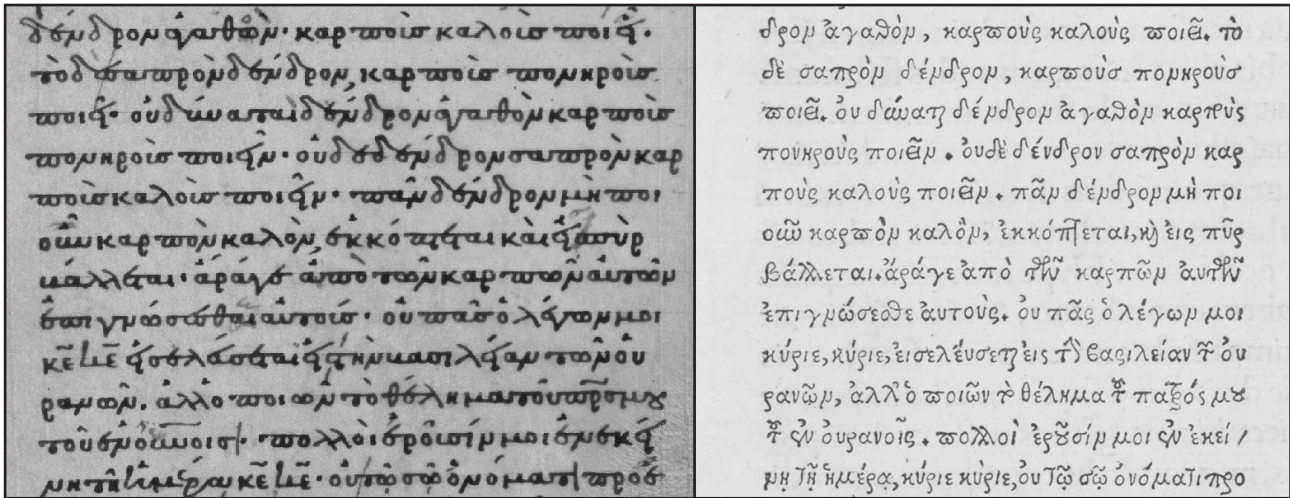 δένδρον ἀγαθὸν· καρποὺς καλοὺς ποιεῖ·
τὸ δὲ σαπρὸν δένδρον, καρποὺς πονηροὺς
ποιεῖ· οὐ δύναται δένδρον ἀγαθὸν καρποὺς
πονηροὺς ποιεῖν· οὐδὲ δένδρον σαπρὸν καρ
ποὺς καλοὺς ποιεῖν· πᾶν δένδρον μὴ ποι
οῦν καρπὸν καλὸν, ἐκκόπτεται καὶ εἰς πῦρ
βάλλεται· ἄραγε ἀπὸ τῶν καρπῶν αὐτῶν
ἐπιγνώσεσθαι αὐτούς· οὐ πᾶς ὁ λέγων μοι
κ̅ε̅ κ̅ε̅ εἰσελεύσεται εἰς τὴν βασιλείαν τῶν οὐ
ρανῶν. ἀλλ' ὁ ποιῶν τὸ θέλημα τοῦ π̅ρ̅ο̅ς μου
τοῦ ἐν ο̅υ̅ν̅οις· πολλοὶ ἐροῦσίν μοι ἐν ἐκεί
νῃ τῇ ἡμέρᾳ κ̅ε̅ κ̅ε̅· οὐ τῷ σῷ ὀνόματι προε
δρον ἀγαθὸν, καρποὺς καλοὺς ποιεῖ. τὸ
δὲ σαπρὸν δένδρον, καρποὺσ πονηροὺσ
ποιεῖ. οὐ δύναται δένδρον ἀγαθὸν καρποὺς
πονηροὺς ποιεῖν. οὐδὲ δένδρον σαπρὸν καρ
ποὺς καλοὺς ποιεῖν. πᾶν δένδρον μὴ ποι
οῦν καρπὸν καλὸν, ἐκκόπτεται, καὶ εἰς πῦρ
βάλλεται. ἄραγε ἀπὸ τῶν καρπῶν αὐτῶν
ἐπιγνώσεσθε αὐτοὺς. οὐ πᾶς ὁ λέγων μοι
κύριε, κύριε, εἰσελεύσεται εἰς τὴν βασιλείαν τῶν οὐ
ρανῶν, ἀλλ' ὁ ποιῶν τὸ θέλημα τοῦ πατρός μου
τοῦ ἐν οὐρανοῖς. πολλοὶ ἐροῦσίν μοι ἐν ἐκεί/
νῃ τῇ ἡμέρᾳ, κύριε κύριε, οὐ τῷ σῷ ὀνόματι προ